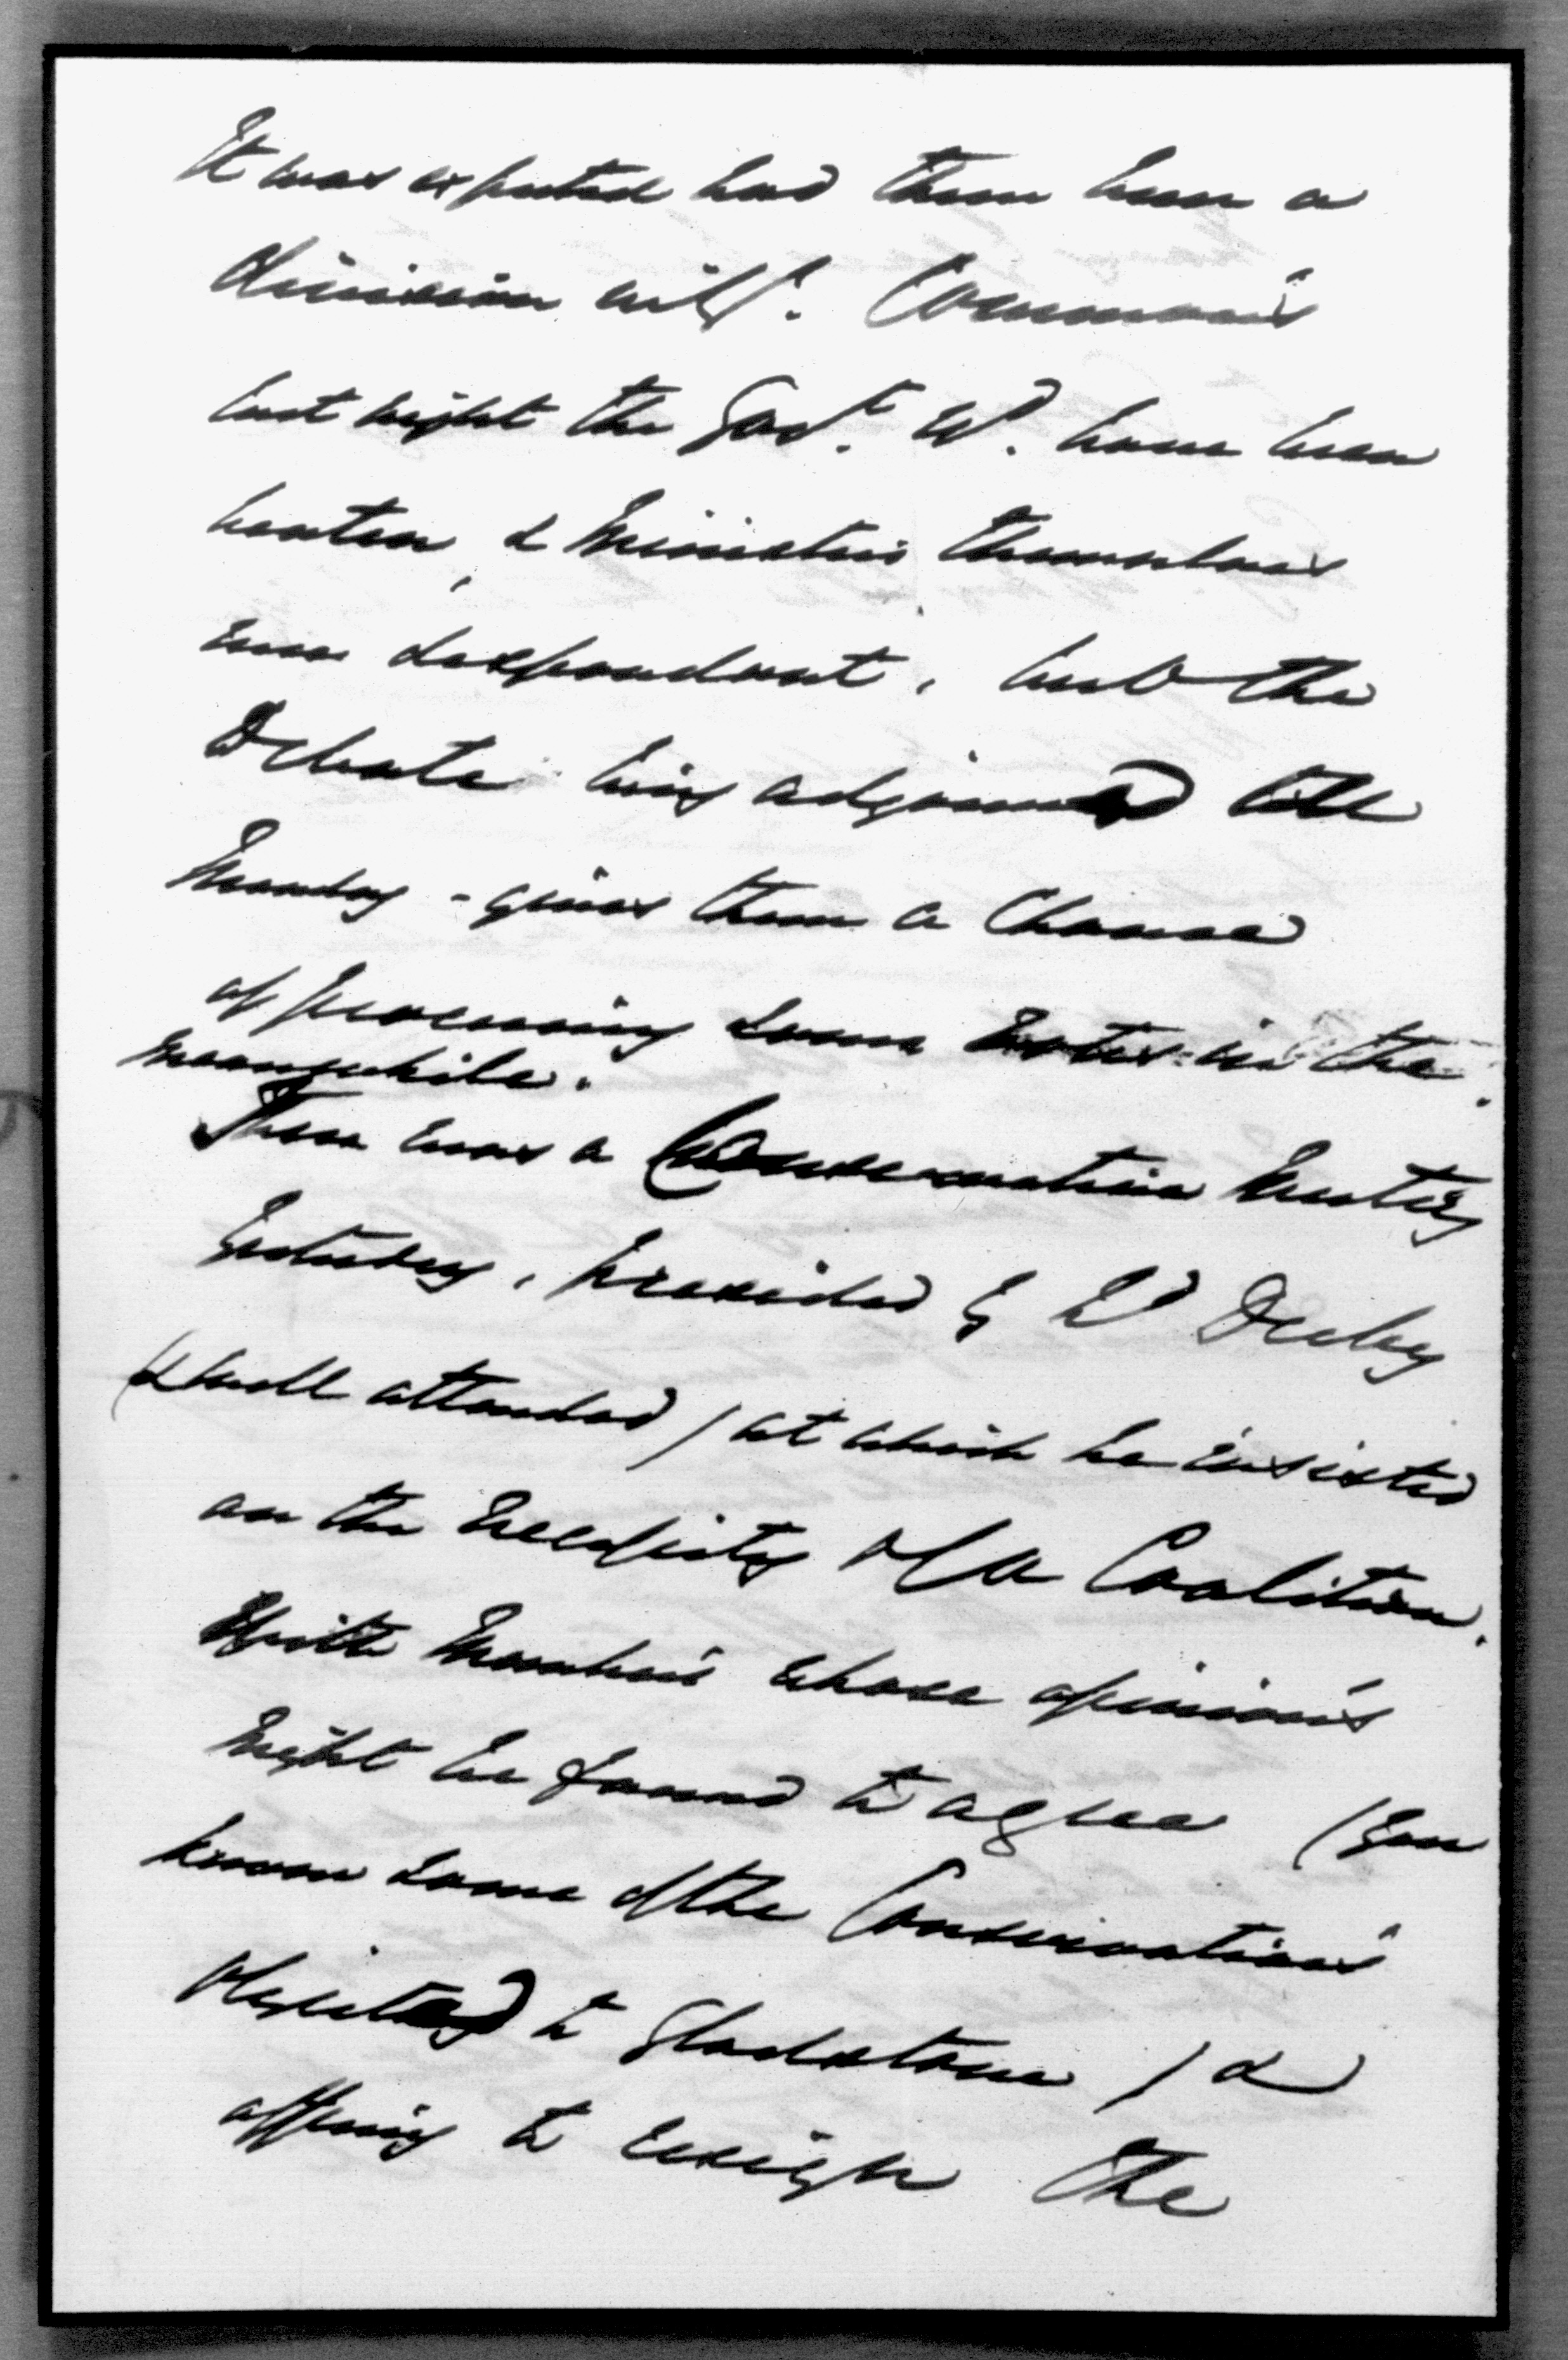 It was expected had there been a
division in ye. Commons
last night the Govt. wd. have been
beaten, & Ministers themselves
were despondent, but the
Debate being adjourned till
Monday - gives them a chance
of procuring some votes in the
meanwhile.
There was a Conservative Meeting
Yesterday, presided by Ld Derby
(& well attended) at which he insisted
on the necessity of a Coalition
with Members whose opinions
might be found to agree (you
know some of the Conservatives
objected to Gladstone) &
offering to resign the